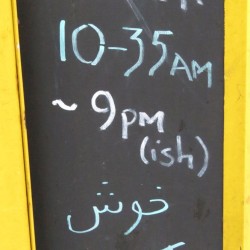 10-35AM
~9pm
(ish)
خوش